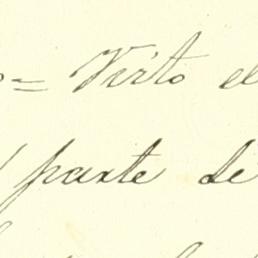 = Visto el
parte de